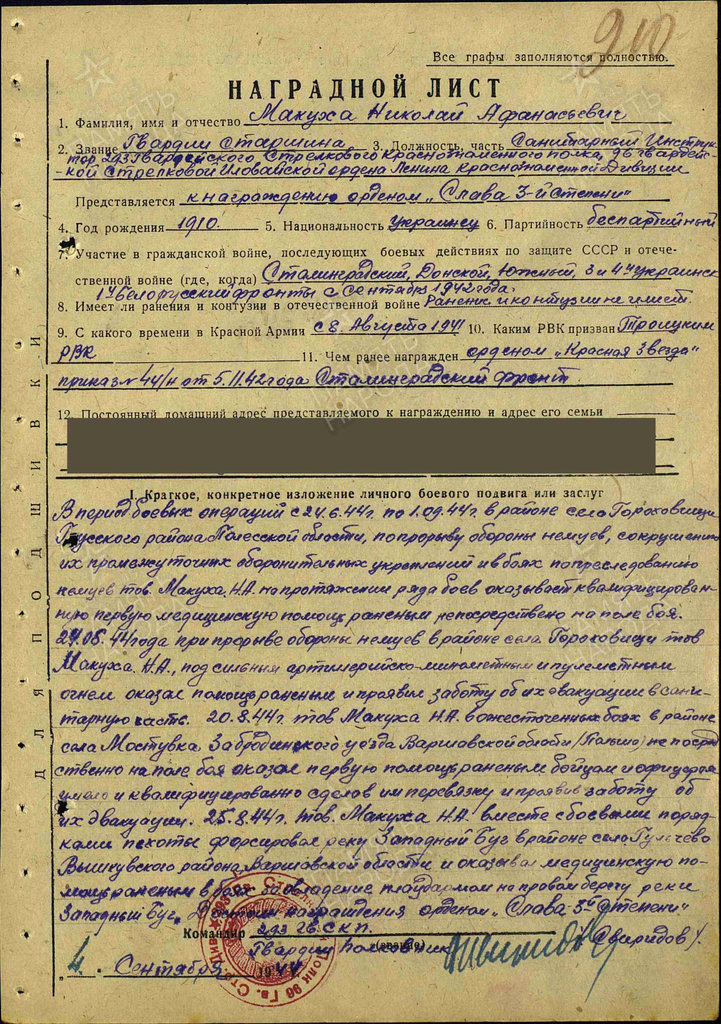 Все графы заполняются полностью.
НАГРАДНОЙ ЛИСТ
1. Фамилия, имя и отчество Макуха Николай Афанасьевич
2. Звание Гвардии старшина 3. Должность, часть Санитарный Инструк-
тор 293 Гвардейского Стрелкового Краснознаменного полка, 96 Гвардейс-
кой Стрелковой Иловайской ордена Ленина Краснознаменной Дивизии
Представляется к награждению орденом „Слава 3-й степени"
4. Год рождения 1910. 5. Национальность Украинец 6. Партийность беспартийный
7. Участие в гражданской войне, последующих боевых действиях по защите СССР и отече-
ственной войне (где, когда) Сталинградский, Донской, Южный, 3 и 4й Украинск
1й Белорусский фронты с сентября 1942 года.
8. Имеет ли ранения и контузии в отечественной войне Ранение и контузии не имеет.
9. С какого времени в Красной Армии с 8. Августа 1941 10. Каким РВК призван Троицким
РВК 11. Чем ранее награжден орденом „Красная Звезда"
приказ № 44/н от 5.11.42 года Сталинградский фронт.
12. Постоянный домашний адрес представляемого к награждению и адрес его семьи
I. Краткое, конкретное изложение личного боевого подвига или заслуг
В период боевых операций с 24.6.44г. по 1.09.44г. в районе села Гороховищи
Глусского района Полесской области, по прорыву обороны немцев, сокрушению
их промежуточных оборонительных укреплений и в боях по преследованию
немцев тов. Макуха Н.А. на протяжении ряда боев оказывает квалифицирован-
ную первую медицинскую помощь раненым непосредствено на поле боя.
24.06.44 года при прорыве обороны немцев в районе села Гороховищи тов
Макуха Н.А., под сильным артиллерийско-минометным и пулеметным
огнем оказал помощь раненым и проявил заботу об их эвакуации в сани-
тарную часть. 20.8.44г. тов Макуха Н.А. в ожесточенных боях в районе
села Мостувка Забродинского уезда Варшавской области (Польша) не посред-
ственно на поле боя оказал первую помощь раненым бойцам и офицерам
умело и квалифицированно сделав им перевязку и проявив заботу об
их эвакуации. 25.8.44г. тов. Макуха Н.А. вместе с боевыми поряд-
ками пехоты форсировал реку Западный Буг в районе села Гульчево
Вышкувского района, Варшавской области и оказывал медицинскую по-
мощь раненым в боях за овладение плацдармом на правом берегу реки
Западный Буг. Достоин награждения орденом „Слава 3й степени"
Командир 293 гв. с к п.
Гвардии полковник (звание) Свиридов
„4" Сентября 1944
ДЛЯ ПОДШИВКИ